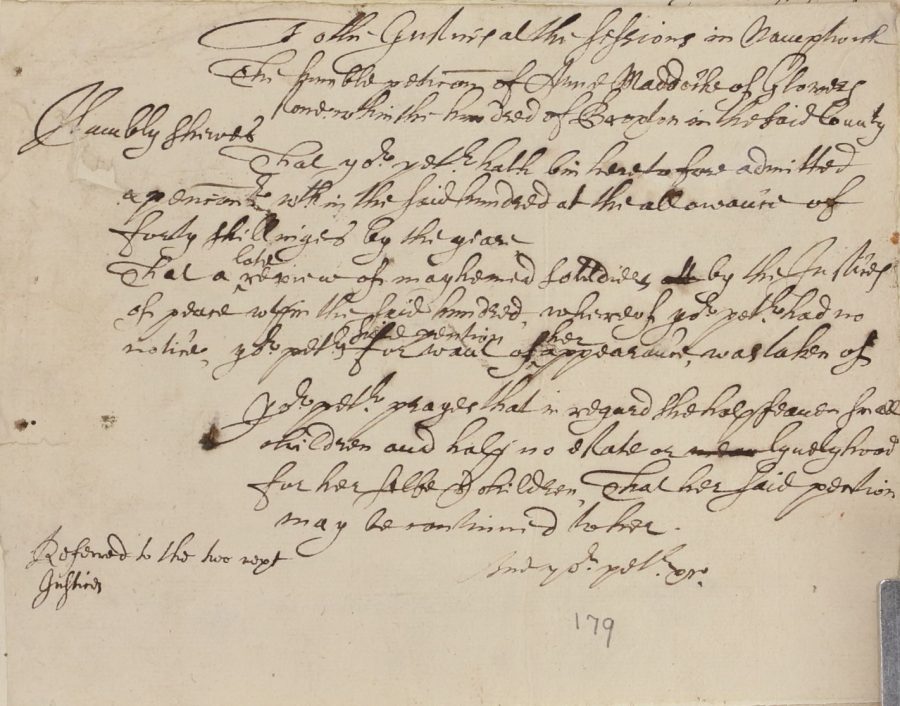 To the Justices at the sessions in Namptwich
The humble peticon of Anne Maddocke of Clowers
Humbly shewes
one wthin the hundred of Broxton in the said County
That yor petr hath bin heretofore admitted
a penconr wth in the said hundred at the allowance of
forty shillinges by the yeare
late
That a ^ review of mayhemed souldiers by the Justices
of peace wthin the said hundred, whereof yor petr had no
her
notice, yor petrs said pention for want of ^ appearance, was taken of
yor petr prayes that in regard she hath seaven small
children and hath no estate or lyvelyhood
for her selfe & children, That her said pention
may be continued to her.
And yor petr &c pr.
Referred to the two next
Justices
179